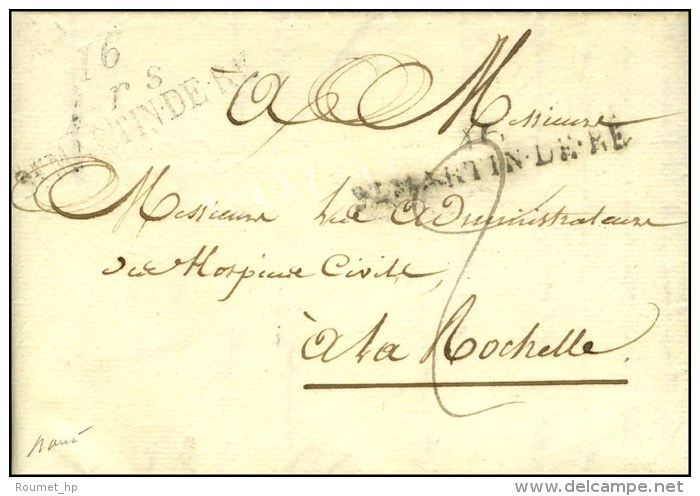 16
r s
ST MARTIN-DE-RÉ
A Messieurs
16
ST MARTIN-DE-RÉ
Messieurs les Administrateurs
des Hospices Civils,
à La Rochelle.
2
Roumet_hp
delcampe.net